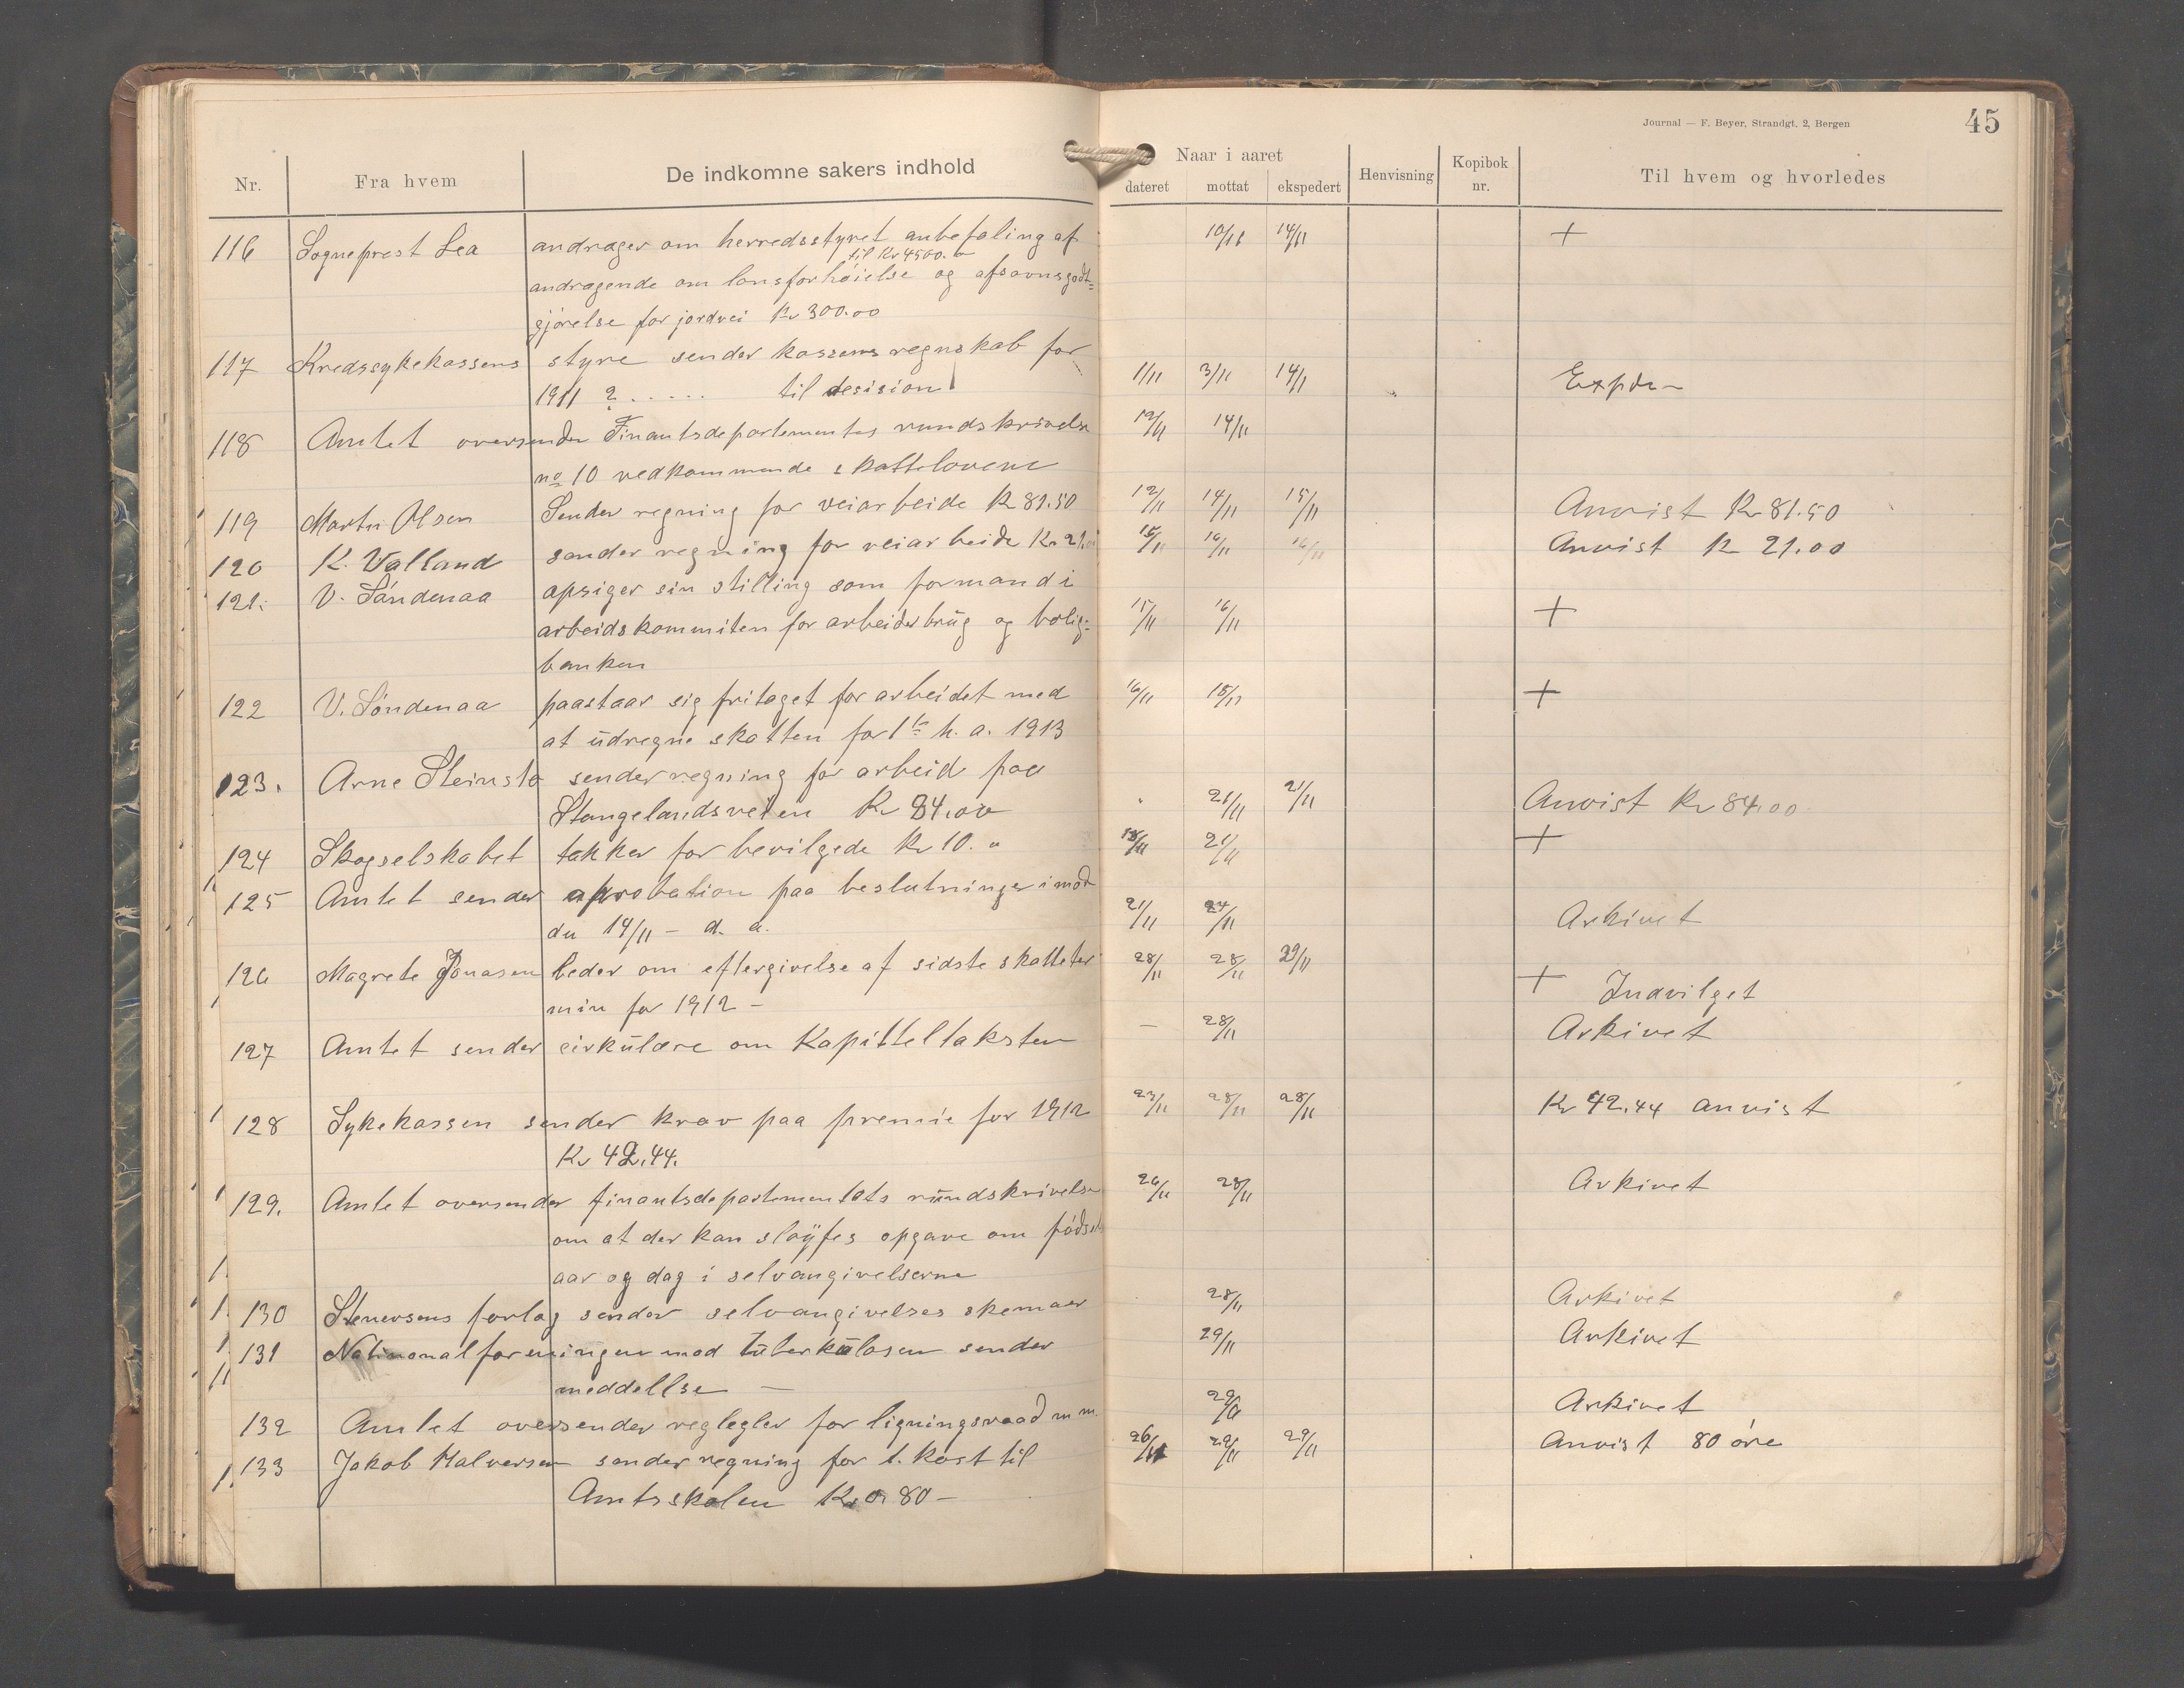 Journal — F. Beyer, Strandgt. 2, Bergen 45
Nr. Fra hvem De indkomne sakers indhold Naar i aaret Henvisning Kopibok nr. Til hvem og hvorledes
dateret mottat ekspedert
116 Sogneprest Lea andrager om herredsstyret anbefaling af 10/11 14/11 +
til Kr 4500.
andragende om lønsforhøielse og afsavnsgodt=
gjørelse for jordvei Kr 300.00
117 Kredssykekassens styre sender kassens regnskab for
1911 ? . . . . . til desision 1/11 3/11 14/11 Expdr
118 Amtet oversender Finantsdepartementes rundskrivelse 12/11 14/11
no 10 vedkommende skattelovene
119 Martin Olsen Sender regning for veiarbeide Kr 81.50 12/11 14/11 15/11 Anvist Kr 81.50
120 K. Valland sender regning for veiarbeide Kr. 21.00 15/11 16/11 16/11 Anvist Kr 21.00
121. V. Søndenaa opsiger sin stilling som formand i
arbeidskommiten for arbeiderbrug og bolig= 15/11 16/11 +
banken
122 V. Søndenaa paastaar sig fritaget for arbeidet med 16/11 18/11 +
at udregne skatten for 1ste h. a. 1913
123. Arne Steinstø sender regning for arbeid paa
Stangelandsveien Kr 84.00 21/11 21/11 Anvist Kr 84.00
124 Skogselskabet takker for bevilgede Kr 10. " 18/11 21/11 +
125 Amtet sender aprobation paa beslutninger i mød
du 14/11 - d. a. 21/11 24/11 Arkivet
126 Magrete Jonasen beder om eftergivelse af sidste skatteter 28/11 28/11 29/11 + Indvilget
min for 1912 -
127 Amtet sender cirkulære om Kapitteltaksten — 28/11 Arkivet
128 Sykekassen sender krav paa premie for 1912 23/11 28/11 28/11 Kr 42.44 anvist
Kr 42.44.
129. Amtet oversender finantsdepartementets rundskrivelse 26/11 28/11 Arkivet
om at der kan sløyfes opgave om fødsels
aar og dag i selvangivelserne
130 Stenersens forlag sender selvangivelses skemaer 28/11 Arkivet
131 Nationalforeningen mod tuberkulosen sender 29/11 Arkivet
meddellse —
132 Amtet oversender reglegler for ligningsraad m m. 29/11 Arkivet
133 Jakob Halversen sender regning for t. kost til 26/11 29/11 29/11 Anvist 80 øre
Amtsskolen Kr 0.80 -